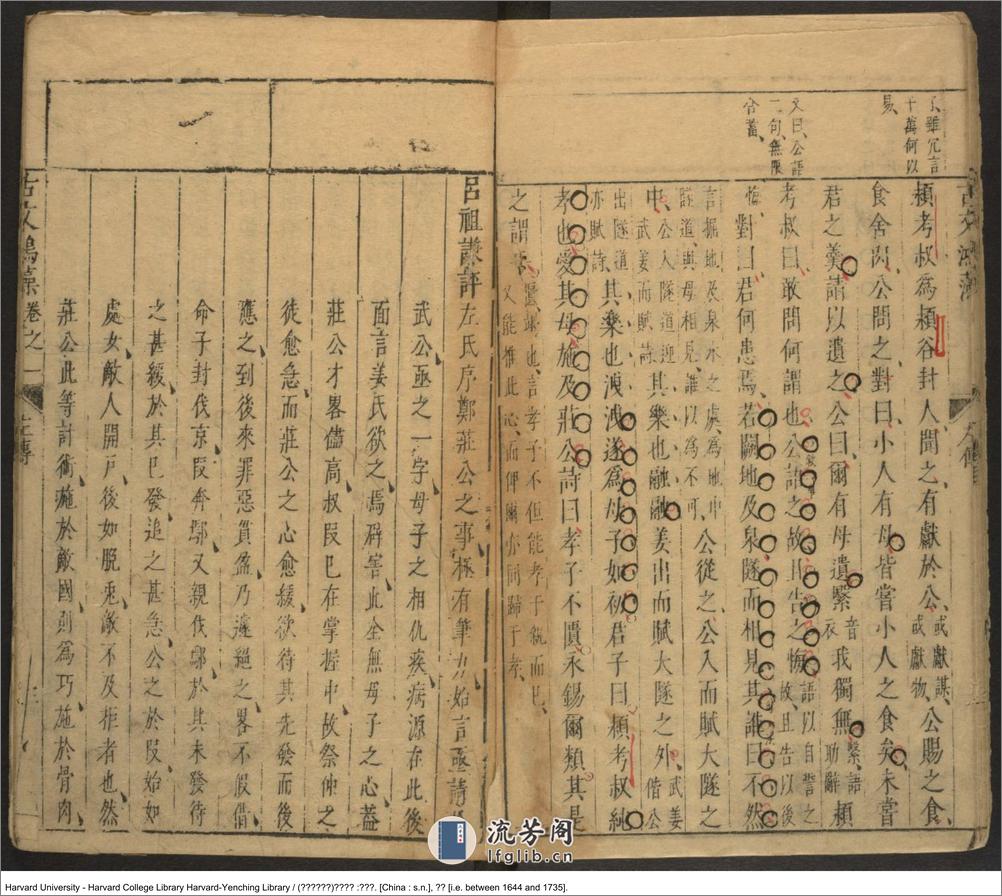 了、雖冗言
千萬何以
易、
又曰、公語
二句、無限
含蓄、
古文鴻藻
左傳
潁考叔爲潁谷封人聞之有獻於公、或獻謀、或獻物、公賜之食
食舍肉公問之對曰小人有母皆嘗小人之食矣未嘗
君之羹請以遺之公曰爾有母遺繄音衣我獨無繄、語助辭潁
考叔曰敢問何謂也公語之故且告之悔語以自誓之故、且告以後
悔對曰君何患焉若闕地及泉隧而相見其誰曰不然
言掘地及泉水之處為地中隧道與母相見誰以為不可公從之公入而賦大隧之
中、公入隧道迎武姜而賦詩其樂也融融姜出而賦大隧之外武姜偕公
出隧道亦賦詩其樂也洩洩遂爲母子如初君子曰潁考叔純
孝也愛其母施及莊公詩曰孝子不匱永錫爾類其是
之謂乎匱竭也言孝子不但能孝于親而已、又能推此心、而俾爾亦同歸于孝、
呂祖謙評左氏序鄭莊公之事極有筆力始言亟請
武公亟之一字母子之相仇疾病源在此後
面言姜氏欲之焉辟害此全無母子之心蓋
莊公才畧儘高叔段已在掌握中故祭仲之
徒愈急而莊公之心愈緩欲待其先發而後
應之到後來罪惡貫盈乃遽絕之畧不假借
命子封伐京段奔鄢又親伐鄢於其未發待
之甚緩於其已發追之甚急公之於段始如
處女敵人開戶後如脫兎敵不及拒者也然
莊公此等計術施於敵國則爲巧施於骨肉
古文鴻藻 卷之一 左傳
流芳阁
lfglib.cn
Harvard University - Harvard College Library Harvard-Yenching Library / (??????)???? :???. [China : s.n.], ?? [i.e. between 1644 and 1735].